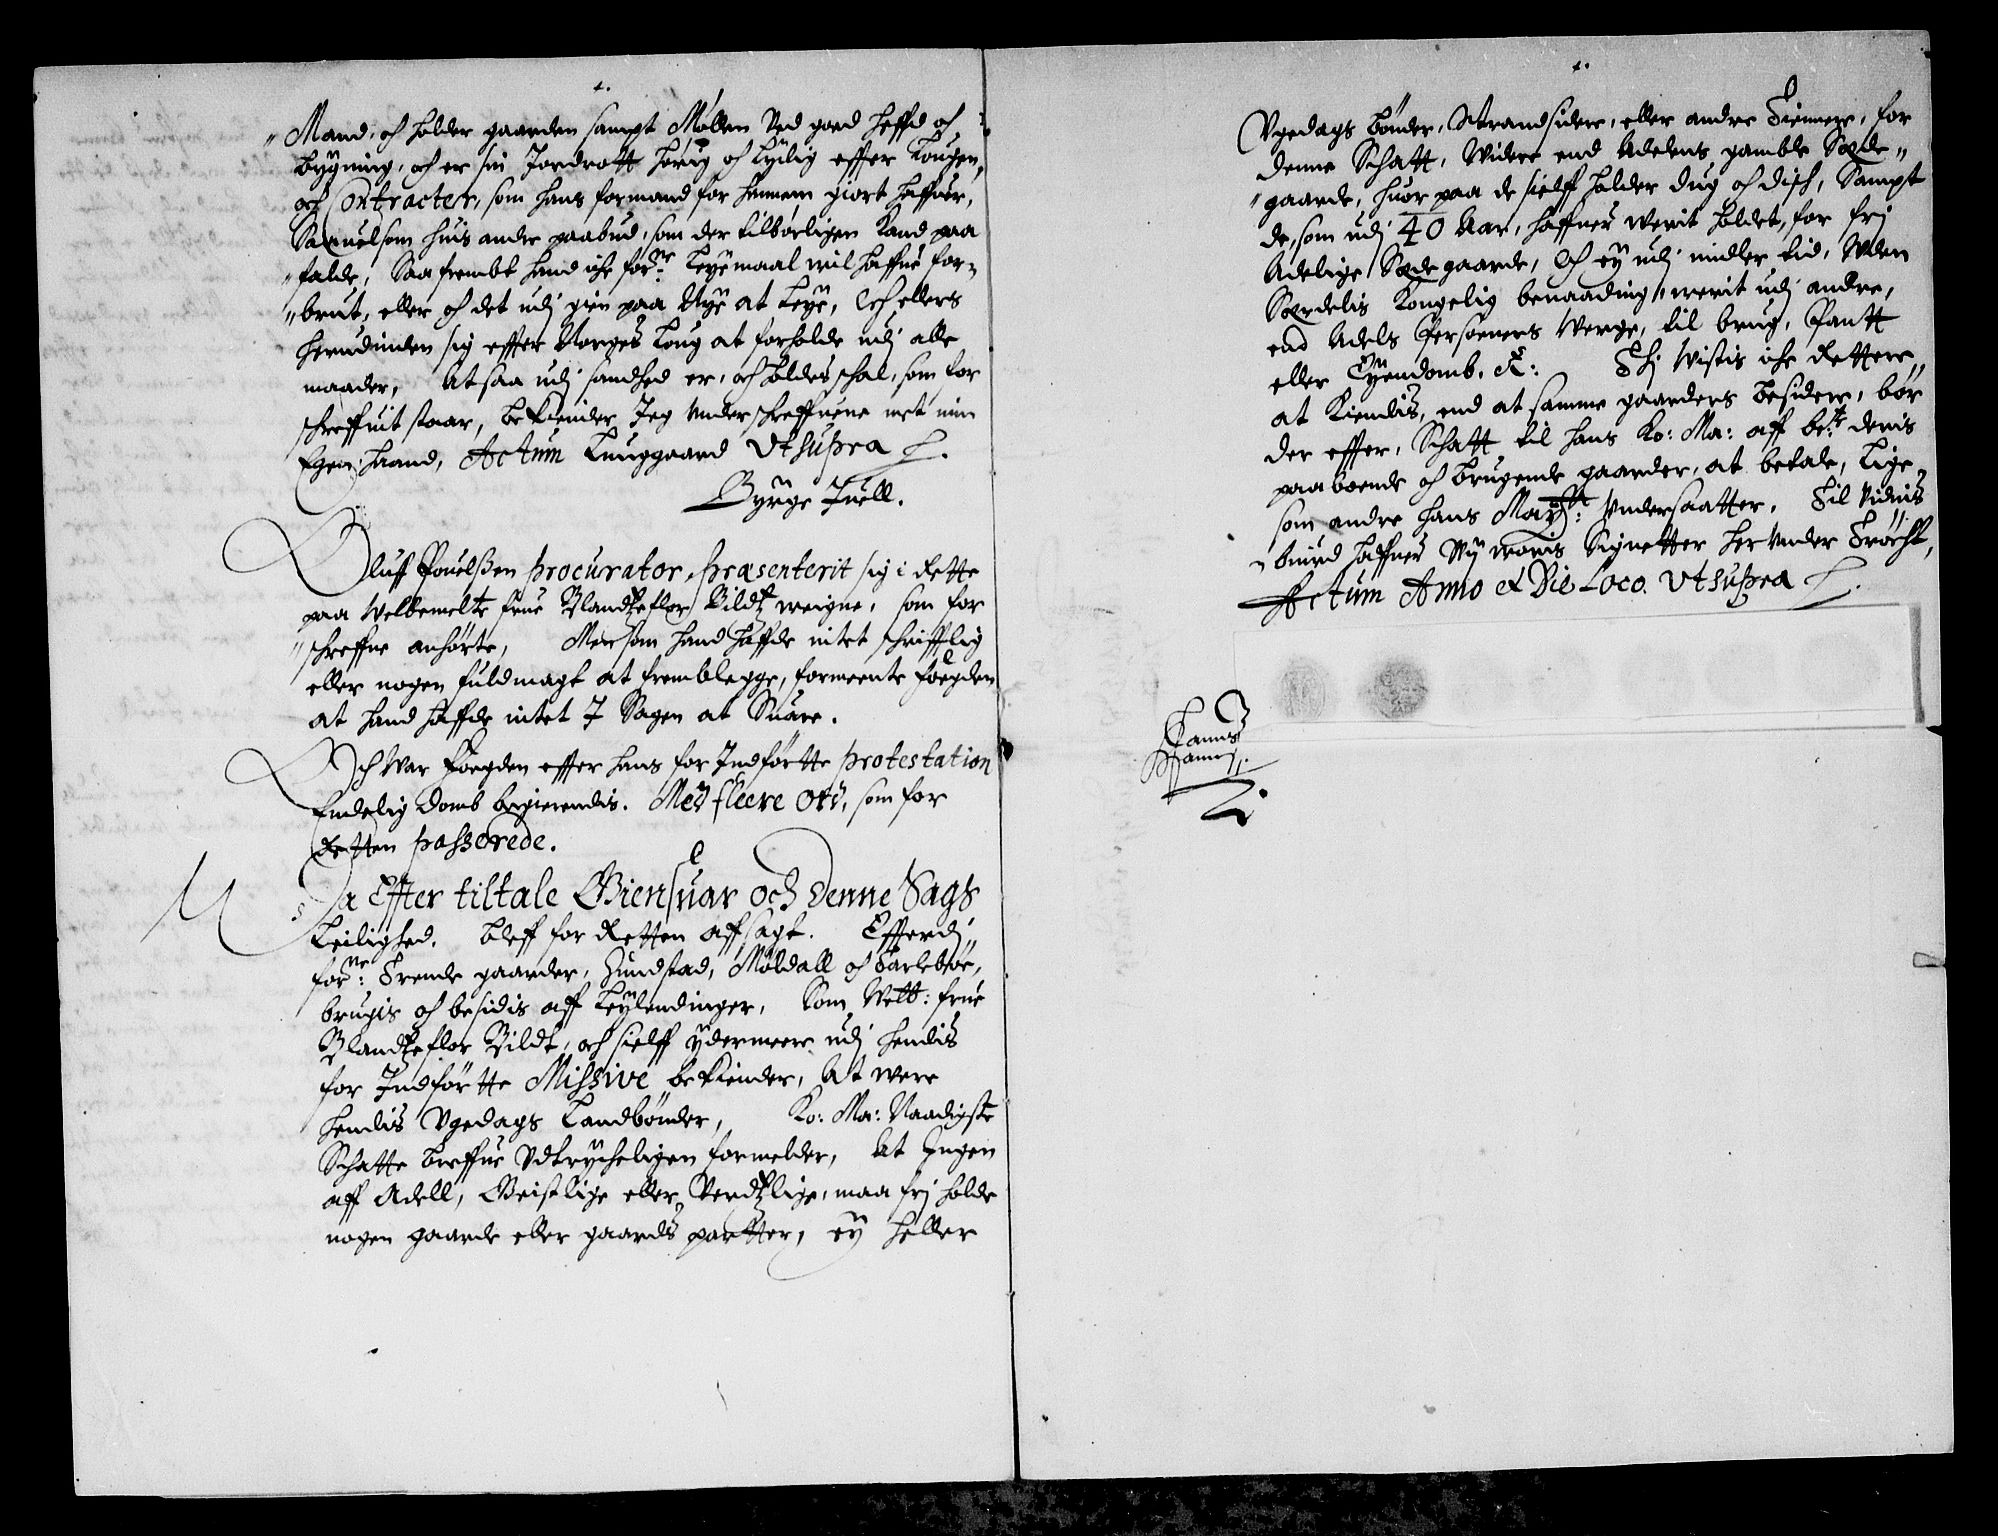 Mand, och holder gaarden sampt Møllen ved goed heffd och
bygning, och er sin Jordrott hørig och lydig effter Lougen,
och Contracter, som hans formand for hannem giort haffuer,
Saauelsom huis andre paabud, som der tilbørligen kand paa
falde, Saafrembt hand iche forne: Leyemaal wil haffue for-
brut, eller och det udj gien paa Nye at leye, Och ellers
herudinden sig effter Norges Loug at forholde udj alle
maader, At saa udj sandhed er, och holdes schal, som for
schreffuit staar, bekiender Jeg Underschreffuene met min
Egen haand, Actum Lunggaard Vtsupra
Byrge Juell.
Oluff Pouelsen procurator, præsenterit sig i Rette
paa Welbemelte frue Blandzeflor Bildtz weigne, som for
schreffne anhørte, Men som hand haffde intet schrifftlig
eller nogen fuldmagt at fremblegge, formeente foegden
at hand haffde intet I Sagen at Suare.
Och War foegden effter hans for Indførtte protestation
Endelig domb begierendis. Med fleere Ord, som for
Retten passerede.
Da Effter tiltale Giensuar och denne Sags
Leilighed, bleff for Retten affsagt. Effterdj
forne: Trende gaarder, Sundstad, Møldall och Tarleboe,
brugis och besidis aff Leylendinger, Som Welb: frue
Blandzeflor Bildt, och sielff ydermeere udj hendis
for Indførtte Missive bekiender, At were
hendis Vgedags Landbønder, Ko: Ma: Naadigste
Schatte breffue Vdtrycheligen formelder, At Ingen
aff Adell, Geistlige eller Verdtzlige, maa frj holde
nogen gaarde eller gaards partter, ey heller
Vgedags bønder, Strandsidere, eller andre Tiennere, for
denne Schatt, Widere end Adelens gamble Sæde-
gaarde, huor paa de sielff holder dug och disch, Sampt
de, som udj 40 Aar, haffuer werit holdet, for frj
Adelige Sædegaarde, Och ey udj midler tid, Uden
Særdelis Kongelig benaading, werit udj andre,
end Adels Persooners Verge, til brug, Pantt
eller Eyendomb, &: Thj Wistis iche Rettere
at kiendis, end at samme gaarders besidere, bør
der effter, Schatt til hans Ko: Ma: aff bete: deris
paaboende och brugende gaarder, at betale, Lige
som andre hans Maytts: Undersaatter, Til Vidnis
buird haffuer Wy woris Signetter her Under Trøcht,
Actum Anno et Die Loco Vtsupra